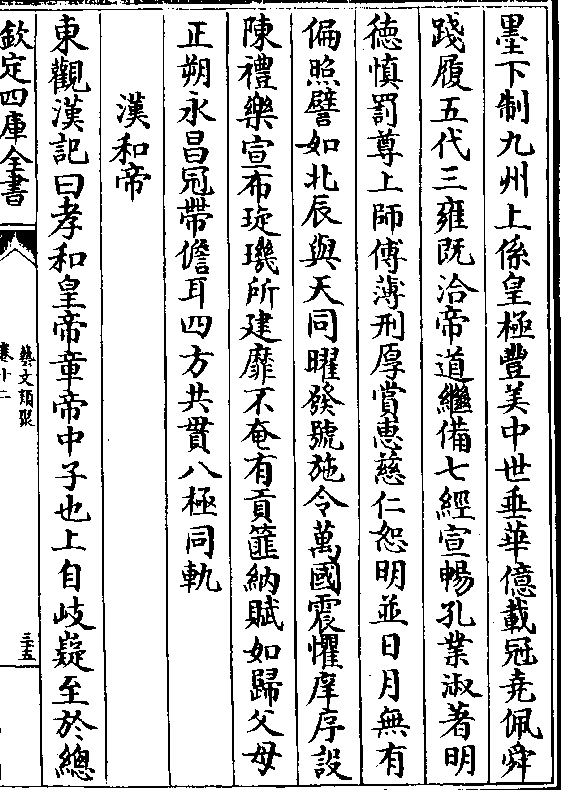 墨下制九州上係皇極豐美中世垂華億載冠堯佩舜
踐履五代三雍既洽帝道繼備七經宣暢孔業淑著明
徳慎罰尊上師傅薄刑厚賞惠慈仁恕明並日月無有
偏照譬如北辰與天同曜發號施令萬國震懼庠序設
陳禮樂宣布琁璣所建靡不奄有貢篚納賦如歸父母
正朔永昌冠帶儋耳四方共貫八極同軌
漢和帝
東觀漢記曰孝和皇帝章帝中子也上自岐嶷至於總
欽定四庫全書
藝文類聚
卷十二
三五